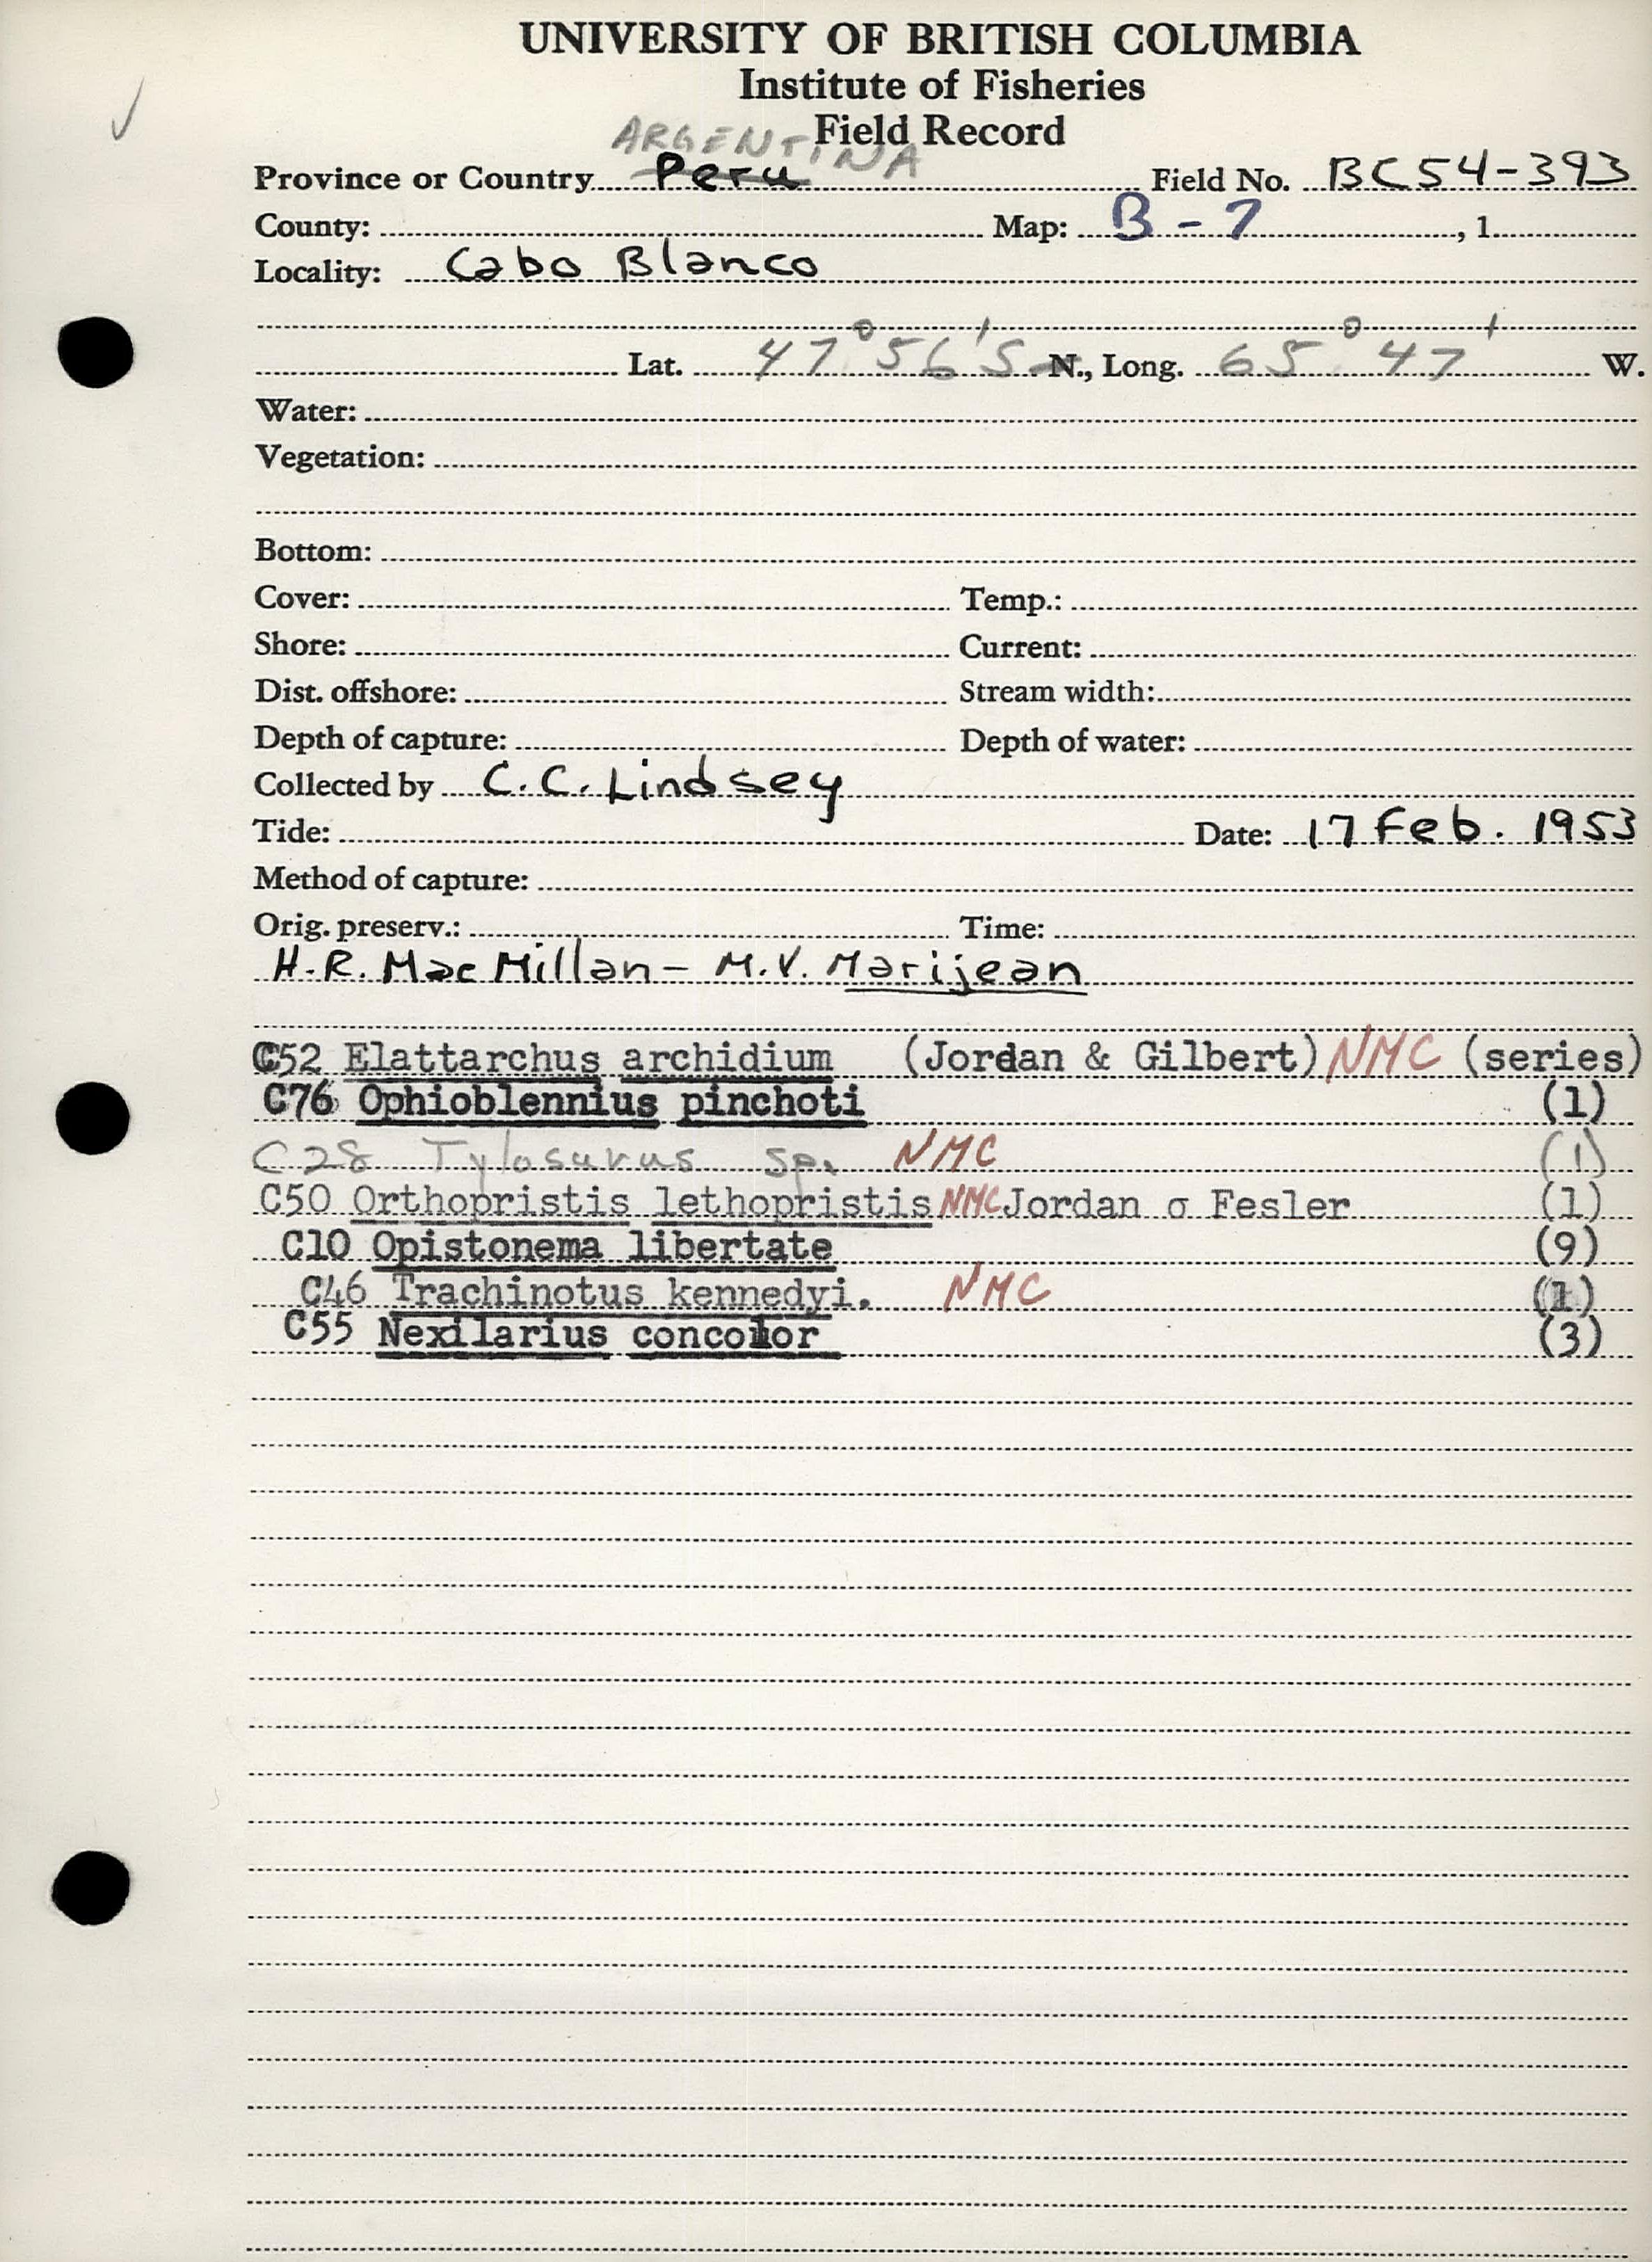 UNIVERSITY OF BRITISH COLUMBIA
Institute of Fisheries
Field Record
ARGENTINA
Province or Country Peru Field No. BC54-393
County: Map: B-7 , 1
Locality: Cabo Blanco
Lat. 47°56'S N., Long. 65°47' W.
Water:
Vegetation:
Bottom:
Cover: Temp.:
Shore: Current:
Dist. offshore: Stream width:
Depth of capture: Depth of water:
Collected by C.C. Lindsey
Tide: Date: 17 Feb. 1953
Method of capture:
Orig. preserv.: Time:
H.R. MacMillan - M.V. Marijean
C52 Elattarchus archidium (Jordan & Gilbert) NMC (series)
C76 Ophioblennius pinchoti (1)
C28 Tylosurus sp. NMC (1)
C50 Orthopristis lethopristis NMC Jordan σ Fesler (1)
C10 Opistonema libertate (9)
C46 Trachinotus kennedyi. NMC (1)
C55 Nexilarius concolor (3)